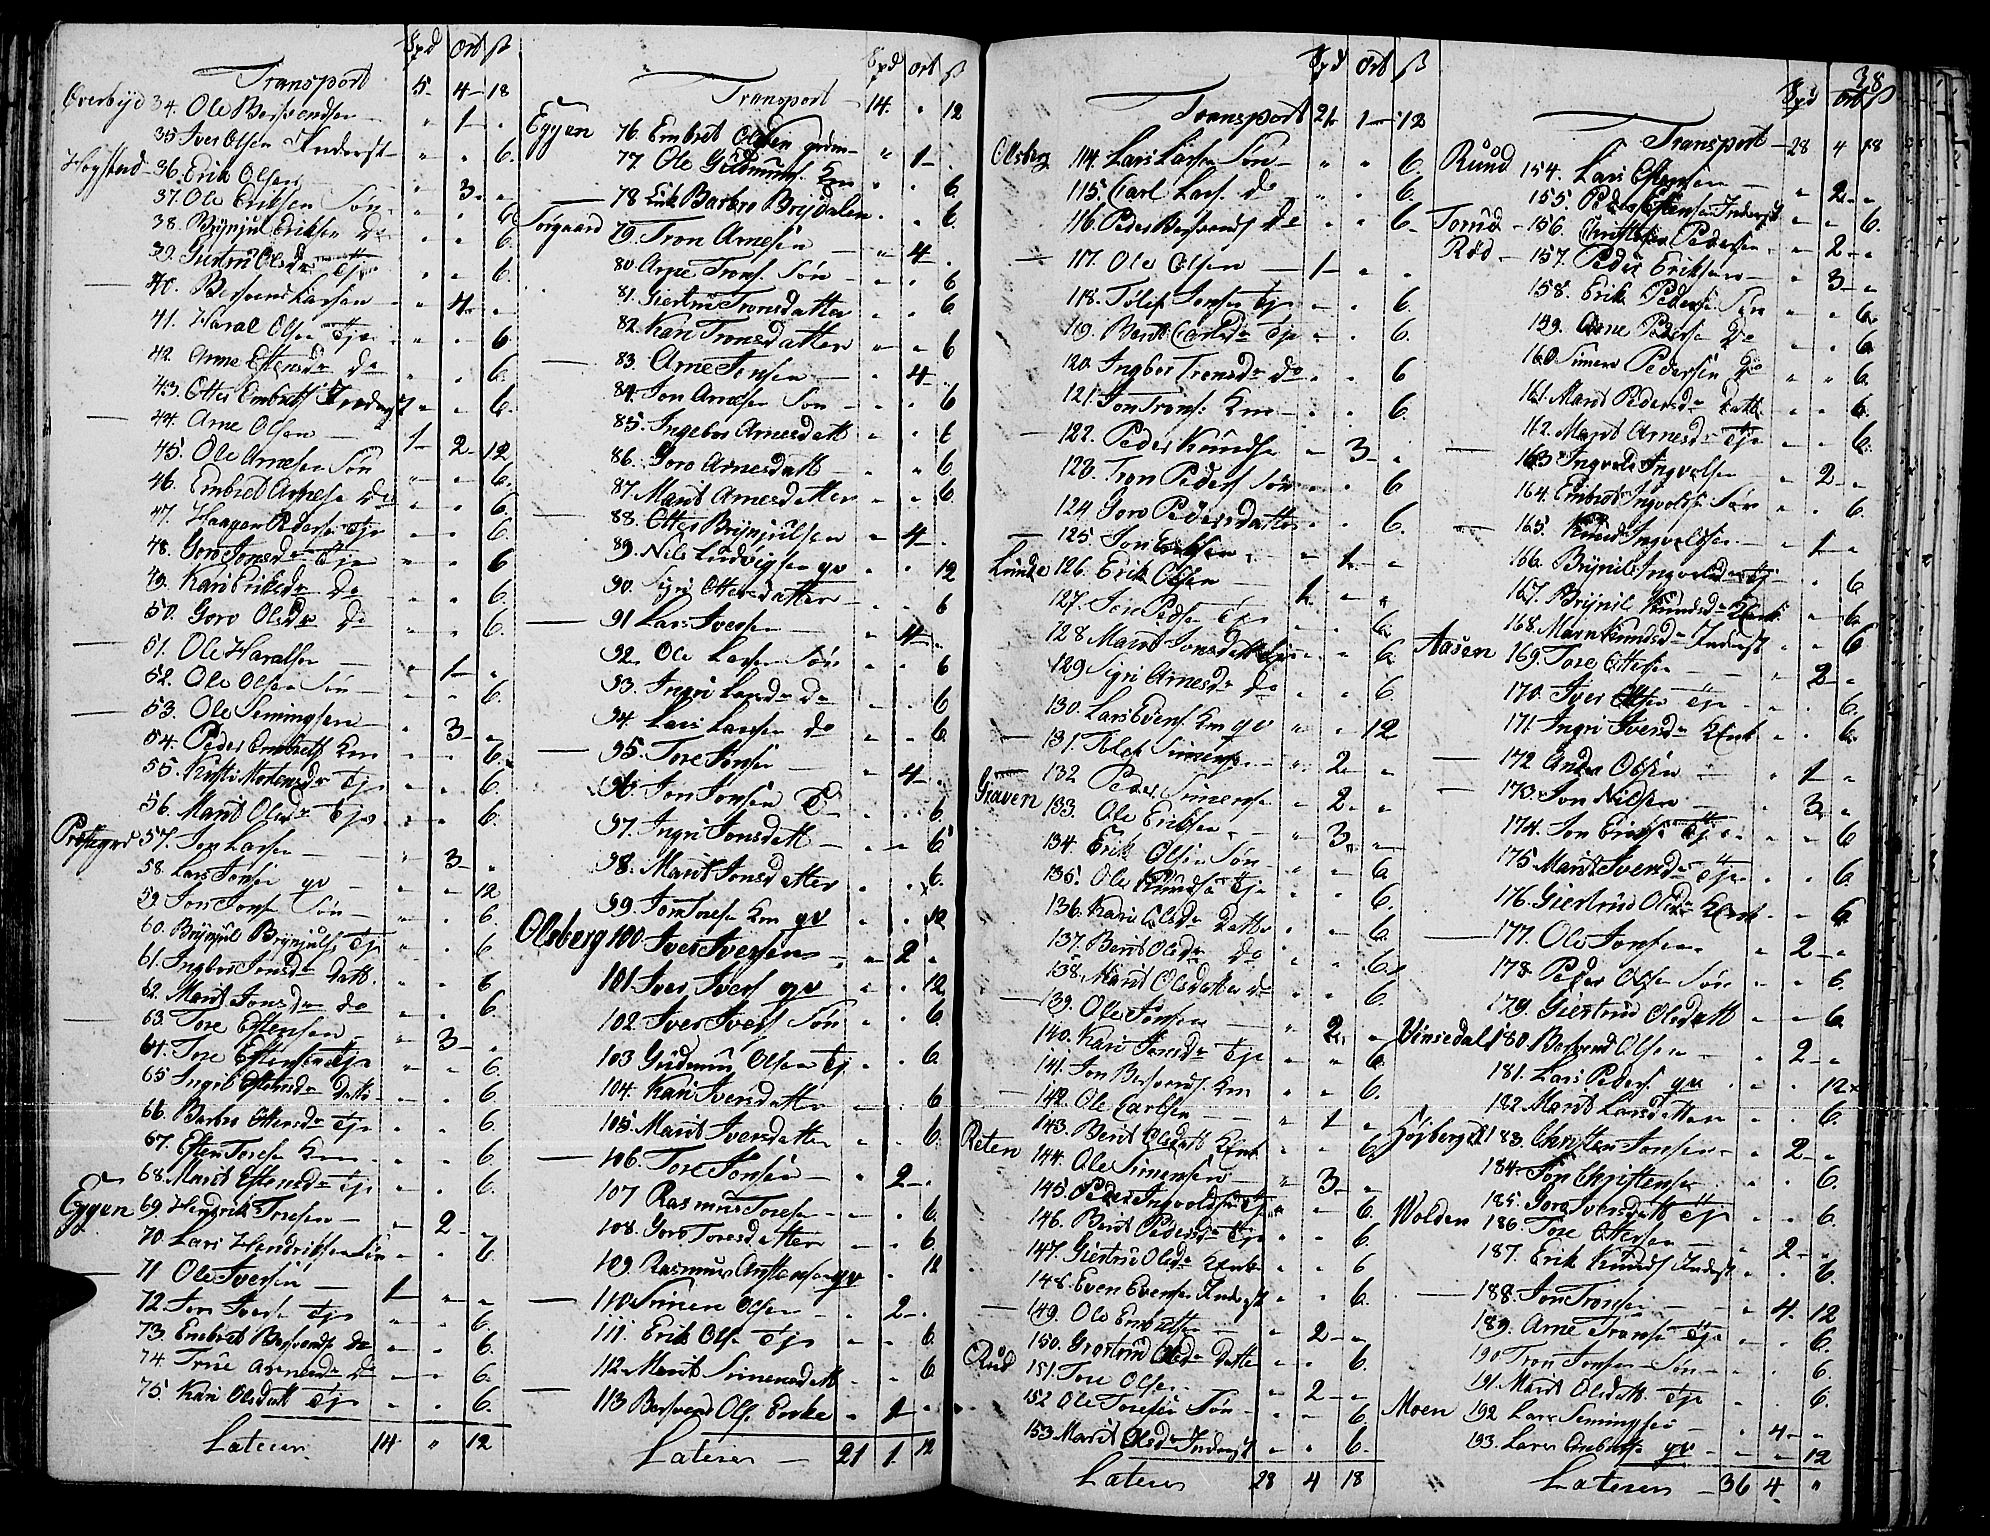 Spd Ort ß
Transport 5 - 4 - 18
Overbyd 34. Ole Bersvendsen - " 1 - "
35 Iver Olsen Inderst - " " 6.
Hogstad - 36. Erik Olsen - " 3 - "
37. Ole Eriksen Søn - " " 6
38. Brynjul Eriksen do " " 6.
39. Giertru Olsdr Tje " " 6.
— 40. Bersvend Larsen - " 4 - "
41. Haral Olsen Tje " " 6.
42. Arne Estensdr do " " 6.
43. Otter Embrets Inderst " " 6.
— 44. Arne Olsen - 1 - 2 - 12
45. Ole Arnesen Søn " " 6.
46. Embret Arnese do " " 6.
47. Haagen Pederse Tje " " 6.
48. Goro Jonsdr Tje " " 6
49. Kari Eriksdr do " " 6.
50. Goro Olsdr do " " 6.
— 51. Ole Haralsen - " 1 - "
52. Ole Olsen Søn - " " 6.
— 53. Ole Simingsen - " 3 - "
54. Peder Embrets Km " " 6.
55. Kisti Mortensdr Tje " " 6.
56. Marit Olsdr Tje " " 6.
Præstegrd 57. Jon Larsen - " 3 - "
58. Lars Jonsen gv - " " 12
59. Jon Jonsen Søn - " " 6.
60. Brynjul Brynjuls Tje " " 6
61. Ingbor Jonsdr datt. " " 6
62. Marit Jonsdr do " " 6
— 63. Tore Estensen - " 3 - "
64. Tore Estensen Tje " " 6.
65 Ingeb Estensdr datt " " 6.
66. Barbro Ottersdr Tje " " 6
67. Esten Toresen Km " " 6
68. Marit Estensdr Tje " " 6.
Eggen 69. Hendrik Toresen - " 2 - "
70. Lars Hendriksen Søn - " " 6.
— 71 Ole Iversen - 1 - " "
72. Jon Iverse Tje " " 6.
73. Embret Bersvends do " " 6.
74. Trine Arnesdr do " " 6.
75. Kari Olsdatt Tje " " 6.
Lateris 14 " 12
Spd Ort ß
Transport - 14. " 12
Eggen 76. Embret Olsen " 1 - "
77. Ole Gudmuns. Km " " 6
78 Erik Barbro Brydalen " " 6.
Sørgaard 79. Tron Arnesen - " 4 - "
80. Arne Trons. Søn - " " 6
81. Giertru Tronsdatter " " 6.
82. Kari Tronsdatter " " 6
— 83. Arne Jonsen - " 4 - "
84. Jon Arnesen Søn - " " 6
85. Ingebor Arnesdatt " " 6
86. Goro Arnesdatt - " " 6.
87. Marit Arnesdatter " " 6.
— 88. Otter Brynjulsen " 4 - "
89. Nils Ludvigsen gv " " 12
90. Sigri Ottersdatter - " " 6
— 91 Lars Iversen - " 4 - "
92. Ole Larsen Søn " " 6
93. Ingri Larsdr do " " 6
94. Lars Larsen do " " 6.
— 95. Tore Jonsen - " 4 - "
96. Jon Jonsen S - " " 6.
97. Ingri Jonsdatt - " " 6
98. Marit Jonsdatter " " 6.
99. Jon Torese Km gv " " 12
Olsberg 100. Iver Iversen " 2 "
101. Iver Ivers gv " " 12
102. Iver Ivers Søn " " 6.
103 Gudmun Olsen Tj " " 6.
104. Kari Iversdatter " " 6
105. Marit Iversdatter " " 6.
— 106. Tore Jonsen " 2 - "
107 Rasmus Toresen - " " 6.
108. Goro Toresdatter " " 6
109. Rasmus Anstensen gv " " 12
— 110. Simen Olsen - " 2 - "
111. Erik Olse Tje - " " 6.
112. Marit Simensdatt " " 6
— 113 Bersvend Ols. Enke " 1 - "
Lateris - 21 1 12
Spd Ort ß
Transport 21 - 1 - 12
Olsberg 114. Lars Larsen Søn - " " 6.
115. Carl Lars. do " " 6.
116. Peder Bersvends do " " 6.
— 117. Ole Olsen - 1 - " "
118. Tolef Jonsen Tje " " 6.
119. Berit Carlsdr Tje " " 6.
120. Ingbor Tronsdr do " " 6
121. Jon Trons. Km " " 6.
— 122. Peder Knudse " 3 - "
123. Tron Peders Søn " " 6
124. Goro Pedersdatter " " 6.
— 125. Jon " 1 - "
Lunde 126. Erik Olsen - 1. " "
127. Jon Peders Tje " " 6.
128 Marit Jonsdatt Tje " " 6.
129 Sigri Arnesdr do " " 6
130. Lars Evens. Km gv " " 12
— 131. Tolef Simens - " 2 - "
— 132 Peder Simense " 2 - "
Graven 133. Ole Eriksen - " 3 - "
134. Erik Olsen Søn - " " 6.
135. Ole Knudse Tje " " 6.
136. Kari Olsdr datter " " 6.
137. Berit Olsdr do " " 6.
138. Marit Olsdatter do " " 6.
— 139. Ole Jonsen - " 2. "
140. Kari Jonsdr Tje " " 6.
141. Jon Bersvends. Km " " 6.
— 142. Ole Carlsen - " 1 - "
143. Berit Olsdatt " " 6
Reten 144. Ole Simensen " 3 - "
145. Peder Ingvoldsen Tje " " 6.
146. Berit Pedersdr Tje " " 6.
147. Giertru Olsdr " " 6
148. Even Evensen Inderst " " 6.
— 149. Ole Embretsen - " 2 - "
150. Giertrud Olsdr datter " " 6.
Rud 151. Tore Olsen " 2 - "
152 Ole Toresen Søn - " " 6
153. Marit Olsdr Inderst " " 6.
Lateris 28 4 18
38
Spd Ort ß
Transport - 28 4 18
Ruud 154. Lars Estensen - " 2 - "
155. Peder Estensen Inderst " " 6.
Tomæ - 156. Christofer Pedersen - " 2 - "
Rød - 157. Peder Eriksen - " 3 - "
158. Erik Pederse Søn " " 6.
159. Arne Pederse do " " 6.
160. Simen Pedersen do " " 6.
161. Marit Pedersdr datt " " 6.
162. Marit Arnesdr Tje " " 6.
— 163 Ingvold Ingvolsen " 2 - "
164. Embret Ingvolds Søn " " 6.
— 165. Knud Ingvoldsen - " 1 - "
166. Brynil Ingvoldsen Tj " " 6.
167. Brynil Knudsdr " " 6.
168. Marn Knudsdr Inderst " " 6
Aasen 169. Tore Ottesen " 2 - "
170. Iver Olsen Tje " " 6.
171. Ingri Iversdr " " 6.
— 172 Anders Olsen - " 1 - "
— 173. Jon Nilsen - " 3 "
174. Jon Erikse Tje " " 6
175 Marit Iversdr Tje " " 6.
176. Giertrud Olsdr " " 6
— 177. Ole Jonsen " 2 - "
178. Peder Olsen Søn " " 6.
179. Giertrud Olsdatt " " 6.
Vinsedal 180. Bersvend Olsen - " 2 - "
181. Lars Peders. gv - " " 12
182. Marit Larsdatter " " 6.
Højberget 183. Christen Jonsen " 2 - "
184. Jon Christense " " 6.
185. Goro Iversdatt Tje " " 6.
Wolden 186. Tore Ottersen - " 2 - "
187. Erik Knuds Inderst " " 6
— 188. Jon Tronsen - " 4 - 12
189. Arne Transe Tje " " 6.
190. Tron Jonsen Søn " " 6
191. Marit Olsdatt Tje " " 6.
Moen 192 Lars Simingsen " 4 - "
193. Lars Embrets gv " " 12
Lateris - 36 4 "